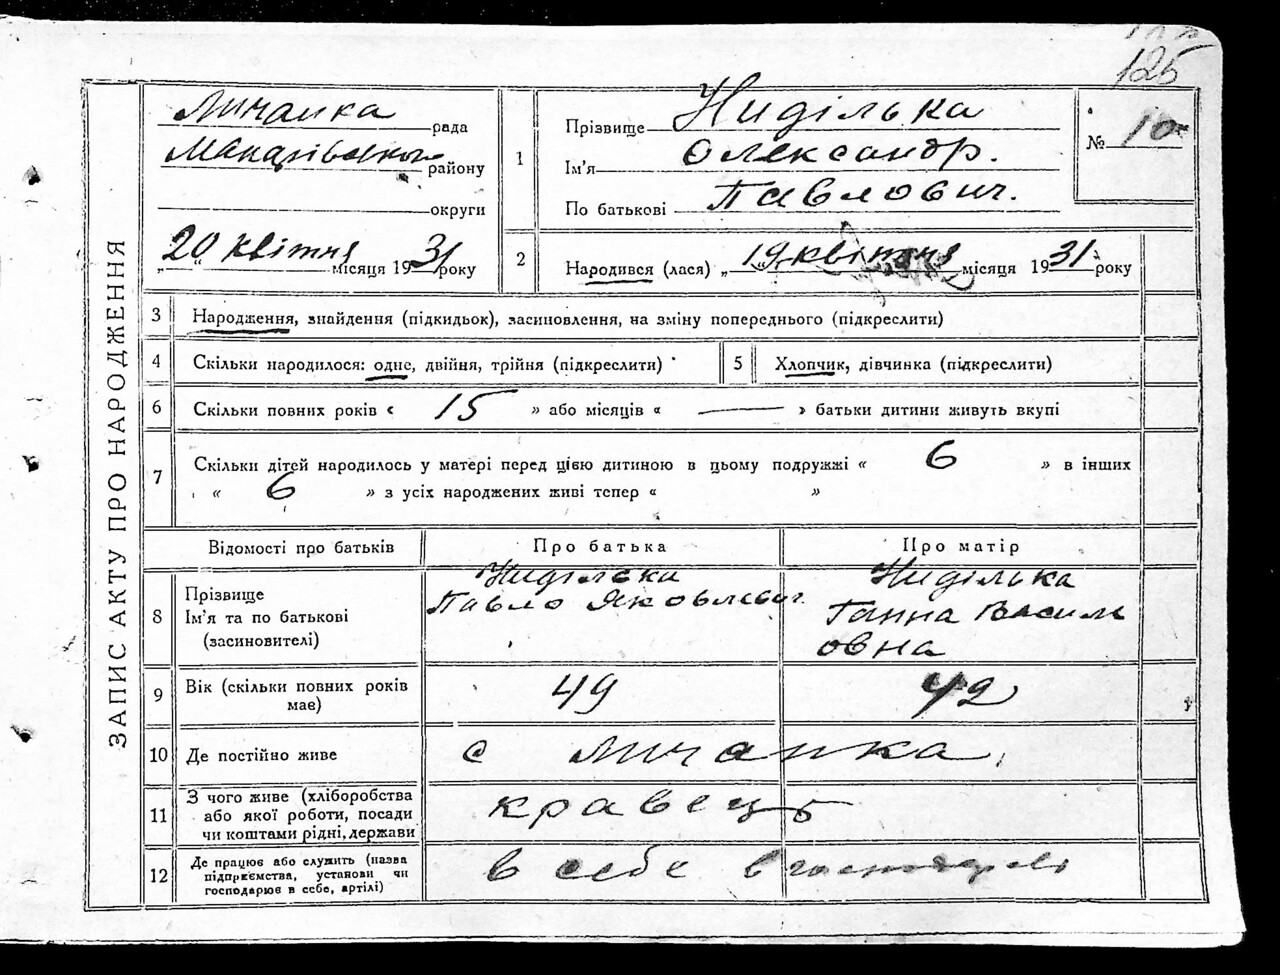 125
ЗАПИС АКТУ ПРО НАРОДЖЕННЯ
Личанка рада
району
округи
„20“ квітня місяця 1931 року
1 Прізвище Ниділька
Ім'я Олександр.
По батькові Павлович.
№ 10
2 Народився (лася) „19“ квітня місяця 1931 року
3 Народження, знайдення (підкидьок), засиновлення, на зміну попереднього (підкреслити)
4 Скільки народилося: одне, двійня, трійня (підкреслити)
5 Хлопчик, дівчинка (підкреслити)
6 Скільки повних років « 15 » або місяців « — » батьки дитини живуть вкупі
7 Скільки дітей народилось у матері перед цією дитиною в цьому подружжі « 6 » в інших
« 6 » з усіх народжених живі тепер « »
Відомості про батьків Про батька Про матір
8 Прізвище
Ім'я та по батькові
(засиновителі)
Ниділька
Павло Яковлевич.
Ниділька
Ганна Васили
овна
9 Вік (скільки повних років
має)
49 42
10 Де постійно живе с Личанка
11 З чого живе (хліборобства
або якої роботи, посади
чи коштами рідні, держави
кравець
12 Де працює або служить (назва
підприємства, установи чи
господарює в себе, артілі)
в себе в